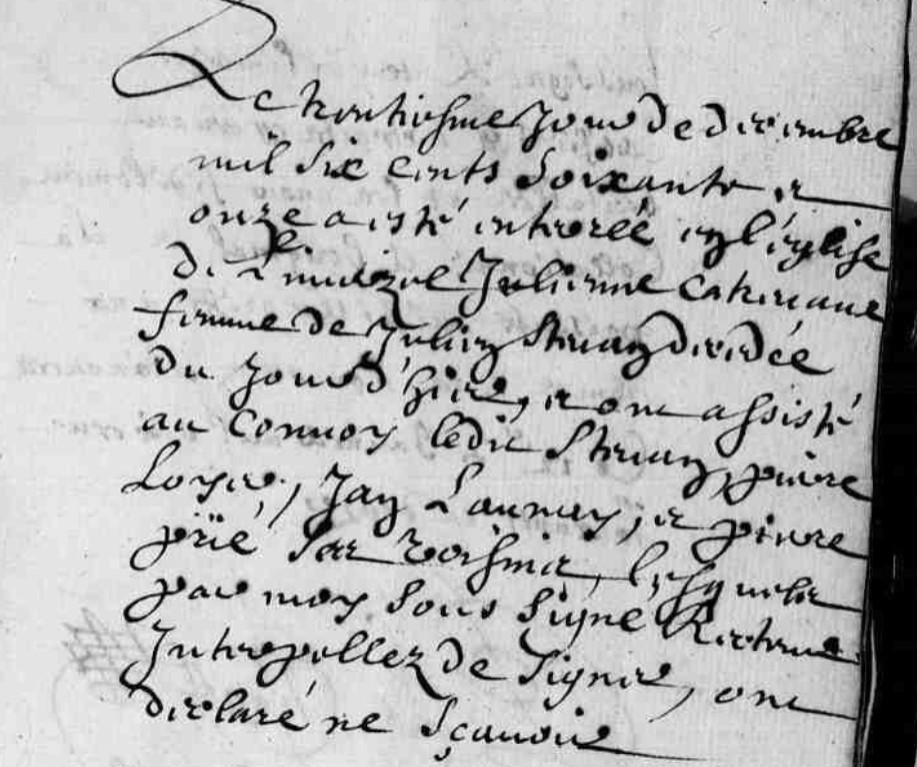 Le trentiesme Jour de decembre
mil six cents Soixante et
onze a esté enterrée en l'églisse
de Julienne Catherinne
femme de Julien decedée
du Jour d'hier, et ont assisté
au Convoy ledit pierre
Loyer, Jan Launay, et pierre
prié ses voisins, lesquels
par moy Sous Signé Recteur
Interpellez de Signer, ont
declaré ne Sçavoir